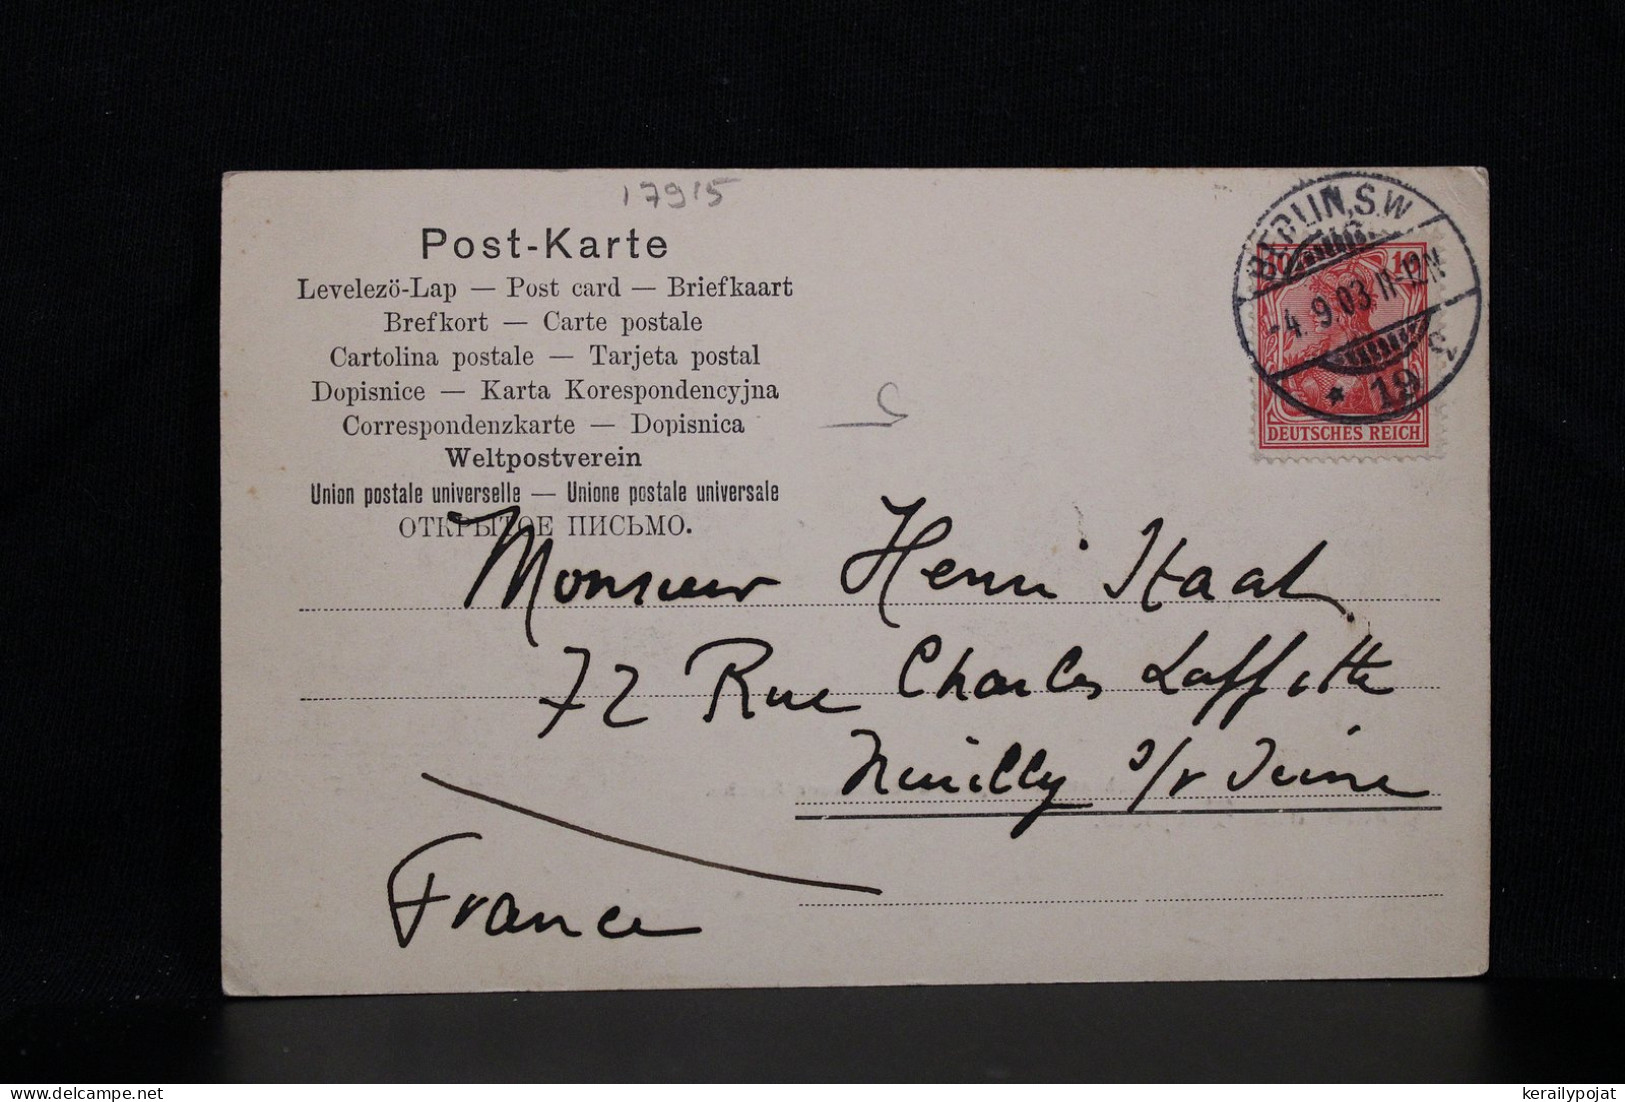 17915
Post-Karte
Levelező-Lap — Post card — Briefkaart
Brefkort — Carte postale
Cartolina postale — Tarjeta postal
Dopisnice — Karta Korespondencyjna
Correspondenzkarte — Dopisnica
Weltpostverein
Union postale universelle — Unione postale universale
ОТКРЫТОЕ ПИСЬМО.
BERLIN,S.W
-4.9.03.11-12N
* 19
10 10
DEUTSCHES REICH
Monsieur Henri Staal
72 Rue Charles Laffitte
Neuilly s/r Seine
France
kerailypojat